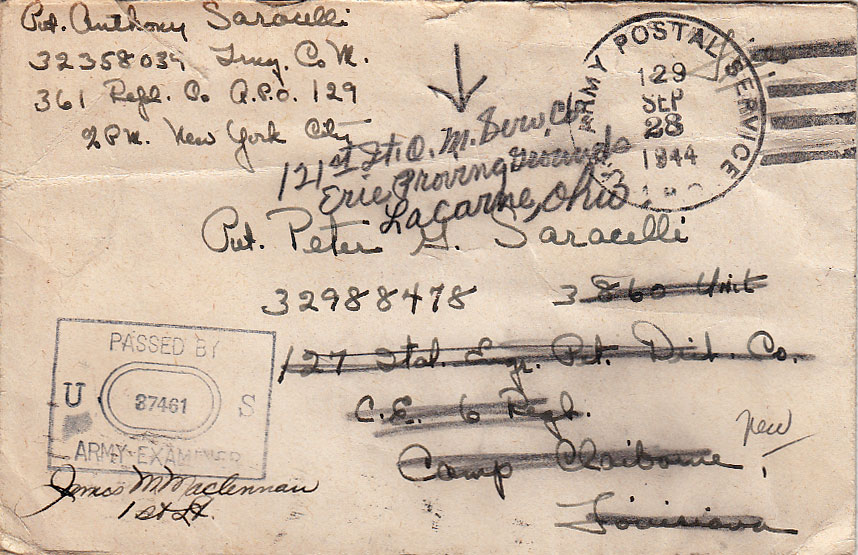 Pvt. Anthony Saracelli
32358039 Trng. Co M.
361 Regl. Co A.P.O. 129
% P.M. New York City
ARMY POSTAL SERVICE
129
SEP
28
1944
121st Q. M. Serv. Co
Erie Proving Grounds
Lacarne, Ohio
Pvt. Peter G. Saracelli
32988478 3860 Unit
127 Engr. Pet. Dist. Co.
C.E. 6 Regl.
Camp Claiborne
new
Louisiana
PASSED BY
U 37461 S
ARMY EXAMINER
James M MacLennan
1st Lt.